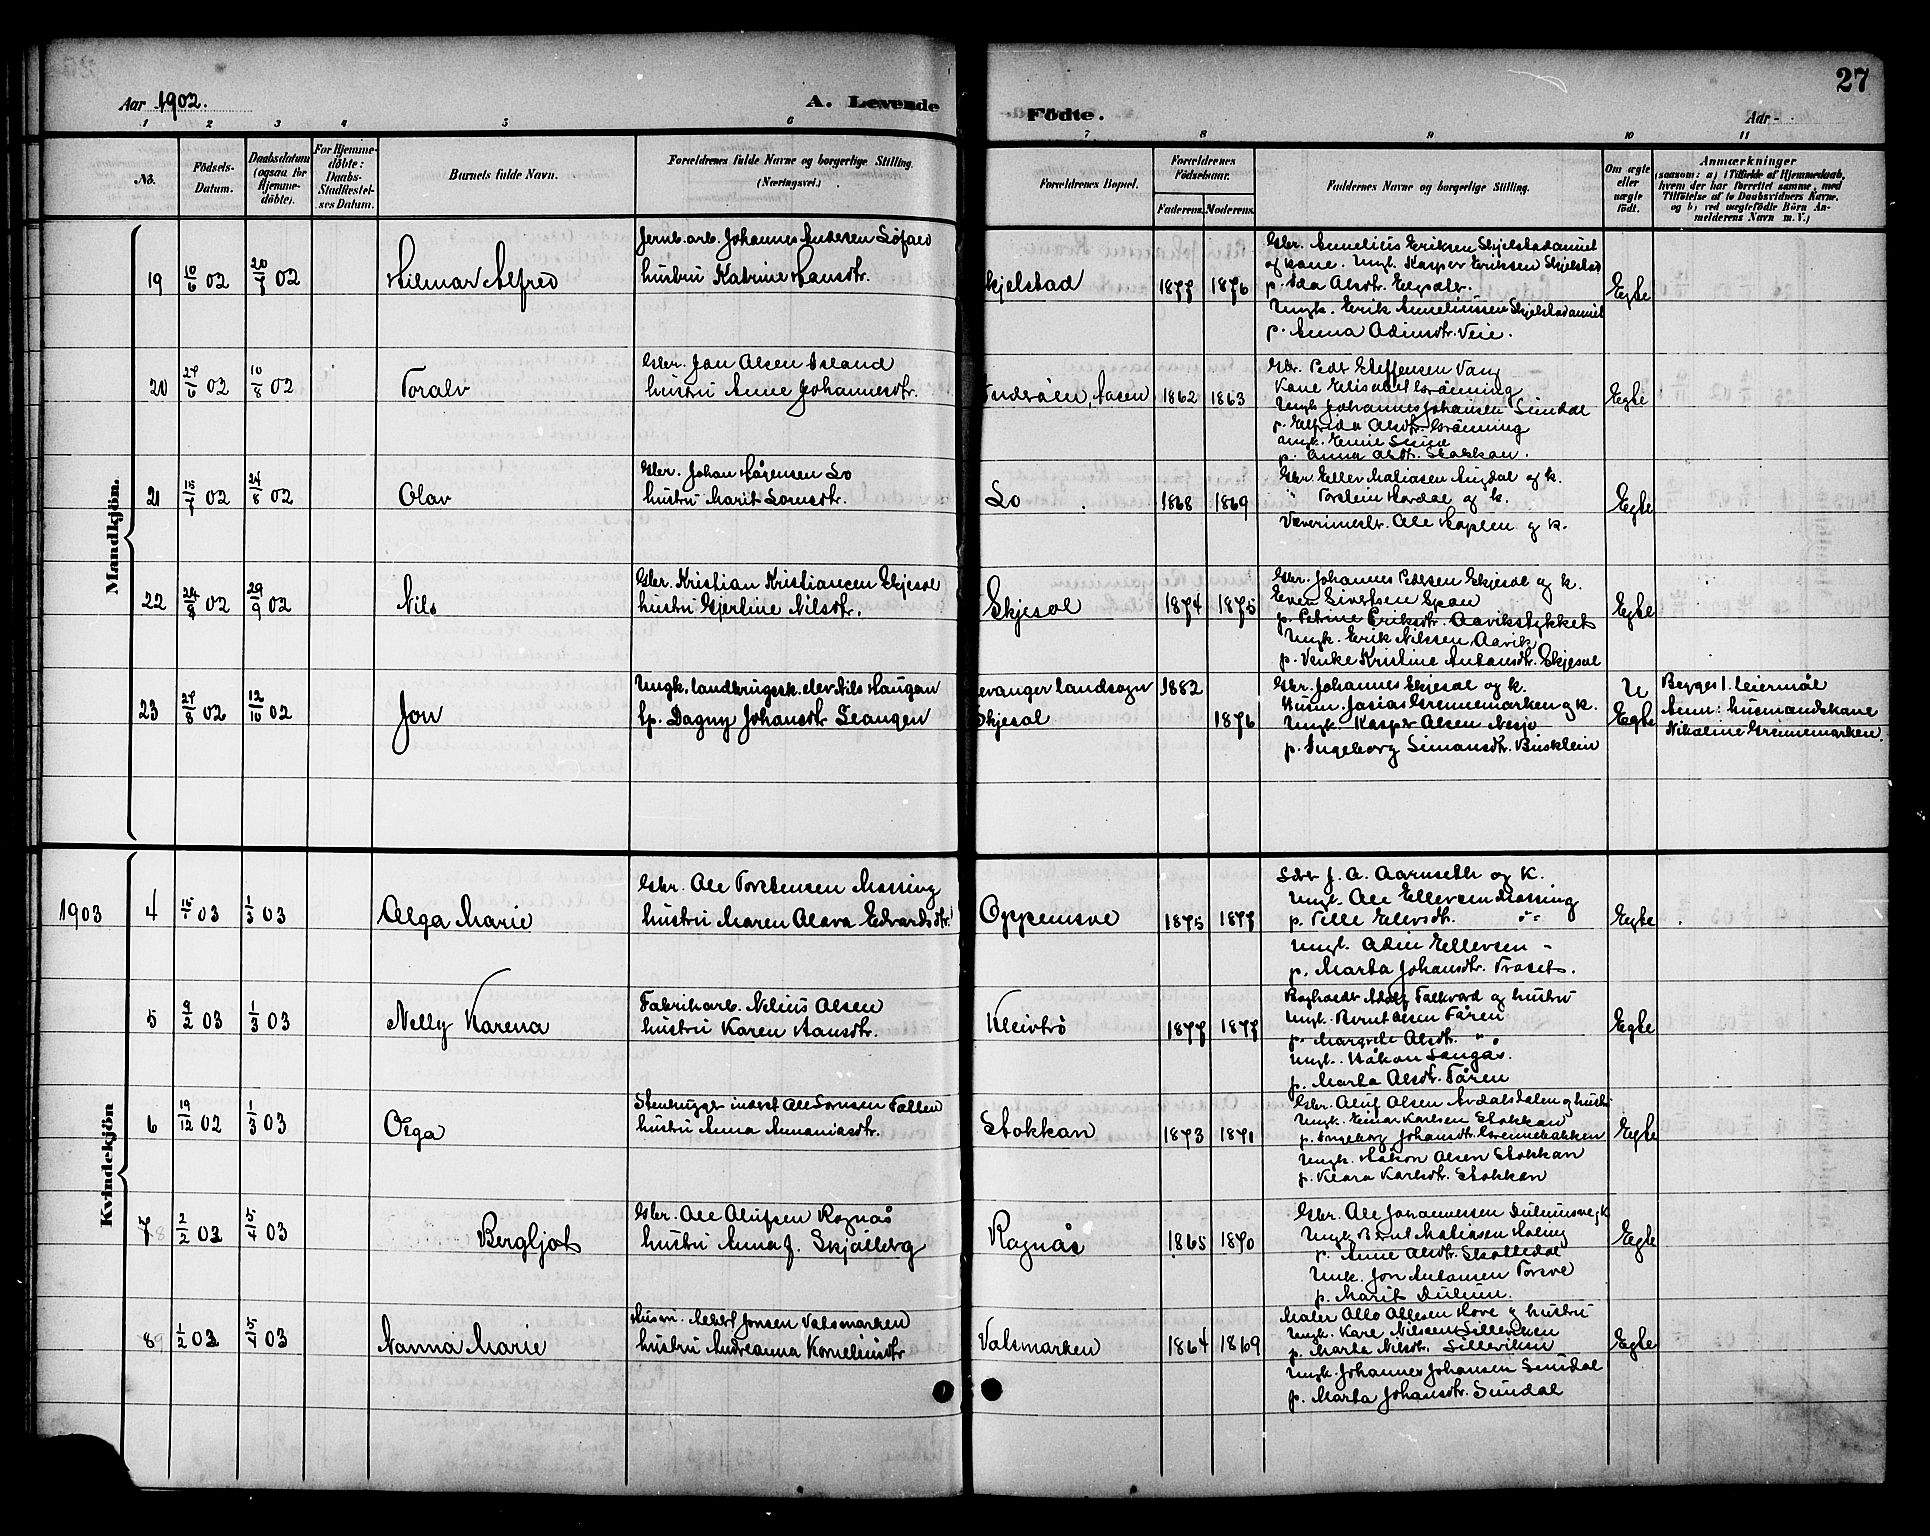 27
Aar 1902.
A. Levende
Födte.
Aar
1 2 3 4 5 6 7 8 9 10 11
No.
Födsels-Datum.
Daabsdatum (ogsaa for Hjemme-döbte).
For Hjemme-döbte: Daabs-Stadfæstel-ses Datum.
Barnets fulde Navn.
Forældrenes fulde Navne og borgerlige Stilling. (Næringsvei.)
Forældrenes Bopæl.
Forældrenes Födselsaar.
Faderens. Moderens.
Faddernes Navne og borgerlige Stilling.
Om ægte eller uægte født.
Anmærkninger
(saasom: a) i Tilfælde af Hjemmedaab,
hvem der har forrettet samme, med
Tilföielse af to Daabsvidners Navne.
og b) ved uægtefödte Börn An-
melderens Navn m. V.)
Mandkjön.
19 10/6 02 20/7 02 Hilmar Alfred
Jernb. arb. Johannes Andersen Löfald
hustru Katrine Hansdtr.
Skjelstad 1877 1876
Gbr. Annelius Eriksen Skjelstadaunet
og kone. Ungk. Kasper Eriksen Skjelstad
p. Ida Olsdtr.
Ungk. Erik Anneliussen Skjelstadaunet
p. Anna Odinsdtr. Veie.
Egte
20 27/6 02 10/8 02 Toralv
Gbr. Jon Olsen Island
hustru Anne Johannesdtr.
Inderöen, Aasen 1862 1863
Gbr. Peder Steffensen Vang
Kone Elisabet Grönning
Ungk. Johannes Johansen Sundal
p. Elfrida Olsdtr. Grönning
Ungk. Emil
p. Anna Olsdtr. Stokkan.
Egte
21 02 24/8 02 Olav
Gbr. Johan Hågensen Lo
hustru Marit Lornsdtr.
Lo 1868 1869
Gbr. Eller Matiasen Augdal og k.
" Torstein Hordal og k.
Væverimestr. Ole Hoplen og k.
Egte
22 02 02 Nils
Gbr. Kristian Kristiansen Skjesol
hustru Gjertine Nilsdtr.
Skjesol 1874 1875
Gbr. Johannes Pedersen Skjesol og k.
Even Sivertsen Span
p. Petrine Eriksdtr. Aavikstykket
Ungk. Erik Nilssen Aavik
p. Venke Kristine Antonsdtr. Skjesol
Egte
23 27/8 02 12/10 02 Jon
Ungk. landbrugssk. elev Nils Haugan
Gp. Dagny Johansdtr. Leangen
Levanger landsogn 1882
Skjesol 1876
Gbr. Johannes Skjesol og k.
Husm. Josias Grennemarken og k.
Ungk. Kasper Olsen Nesjo
p. Ingeborg Simonsdtr. Busklein
U Egte
Begges 1. leiermål
Anm: husmandskone
Nikoline Grennemarken.
Kvindekjön
1903
4 03 1/3 03 Olga Marie
Gbr. Ole Torstensen Mossing
hustru Maren Olava Edvardsdtr.
Oppemsve 1875 1877
J. A. Aarnseth og k.
Ungk. Ole Ellevsen Mossing
p. Pelle Ellevsdtr. "
Ungk. Odin Ellevsen "
p. Marta Johansdtr. Troset.
Egte
5 9/2 03 1/3 03 Nelly Karena
Fabrikarb. Nelius Olsen
hustru Karen Hansdtr.
Kleivbrö 1877 1877
Bogholder Adolf Falkvard og hustru
Ungk. Bernt Olsen Fåren
p. Margrete Olsdtr. "
Ungk. Håkon Langås.
p. Marta Olsdtr. Fåren
Egte
6 19/12 02 1/3 03 Olga
Stenhugger inderst Ole Lornsen Follen
hustru Anna Annaniasdtr.
Stokkan 1873 1871
Gbr. Oluf Olsen Avdalsdalen og hustr.
Ungk. Einar Karlsen Stokkan
p. Ingeborg Johansdtr. Grennebakken
Ungk. Håkon Olsen Stokkan
p. Klara Karlsdtr. Stokkan
Egte
7 2/2 03 5/4 03 Bergljot
Gbr. Ole Olufsen Rognås
hustru Anna J. Skjölberg
Rognås 1865 1870
Gbr. Ole Johannessen
Ungk. Bernt Matiasen
p. Anne Olsdtr. Skolledal
Ungk. Jon Antonsen Torsve
p. Marit
Egte
8 1/2 03 5/4 03 Nanna Marie
Husm. Albert Jonsen Valsmarken
hustru Andreanna Korneliusdtr
Valsmarken 1864 1869
Maler Olle Ollesen Hove og hustru
Ungk. Karl Nilssen Lilleviken
p. Marta Nilsdtr. Lilleviken
Ungk. Johannes Johansen Sundal
p. Marta Johansdtr. Sundal
Egte